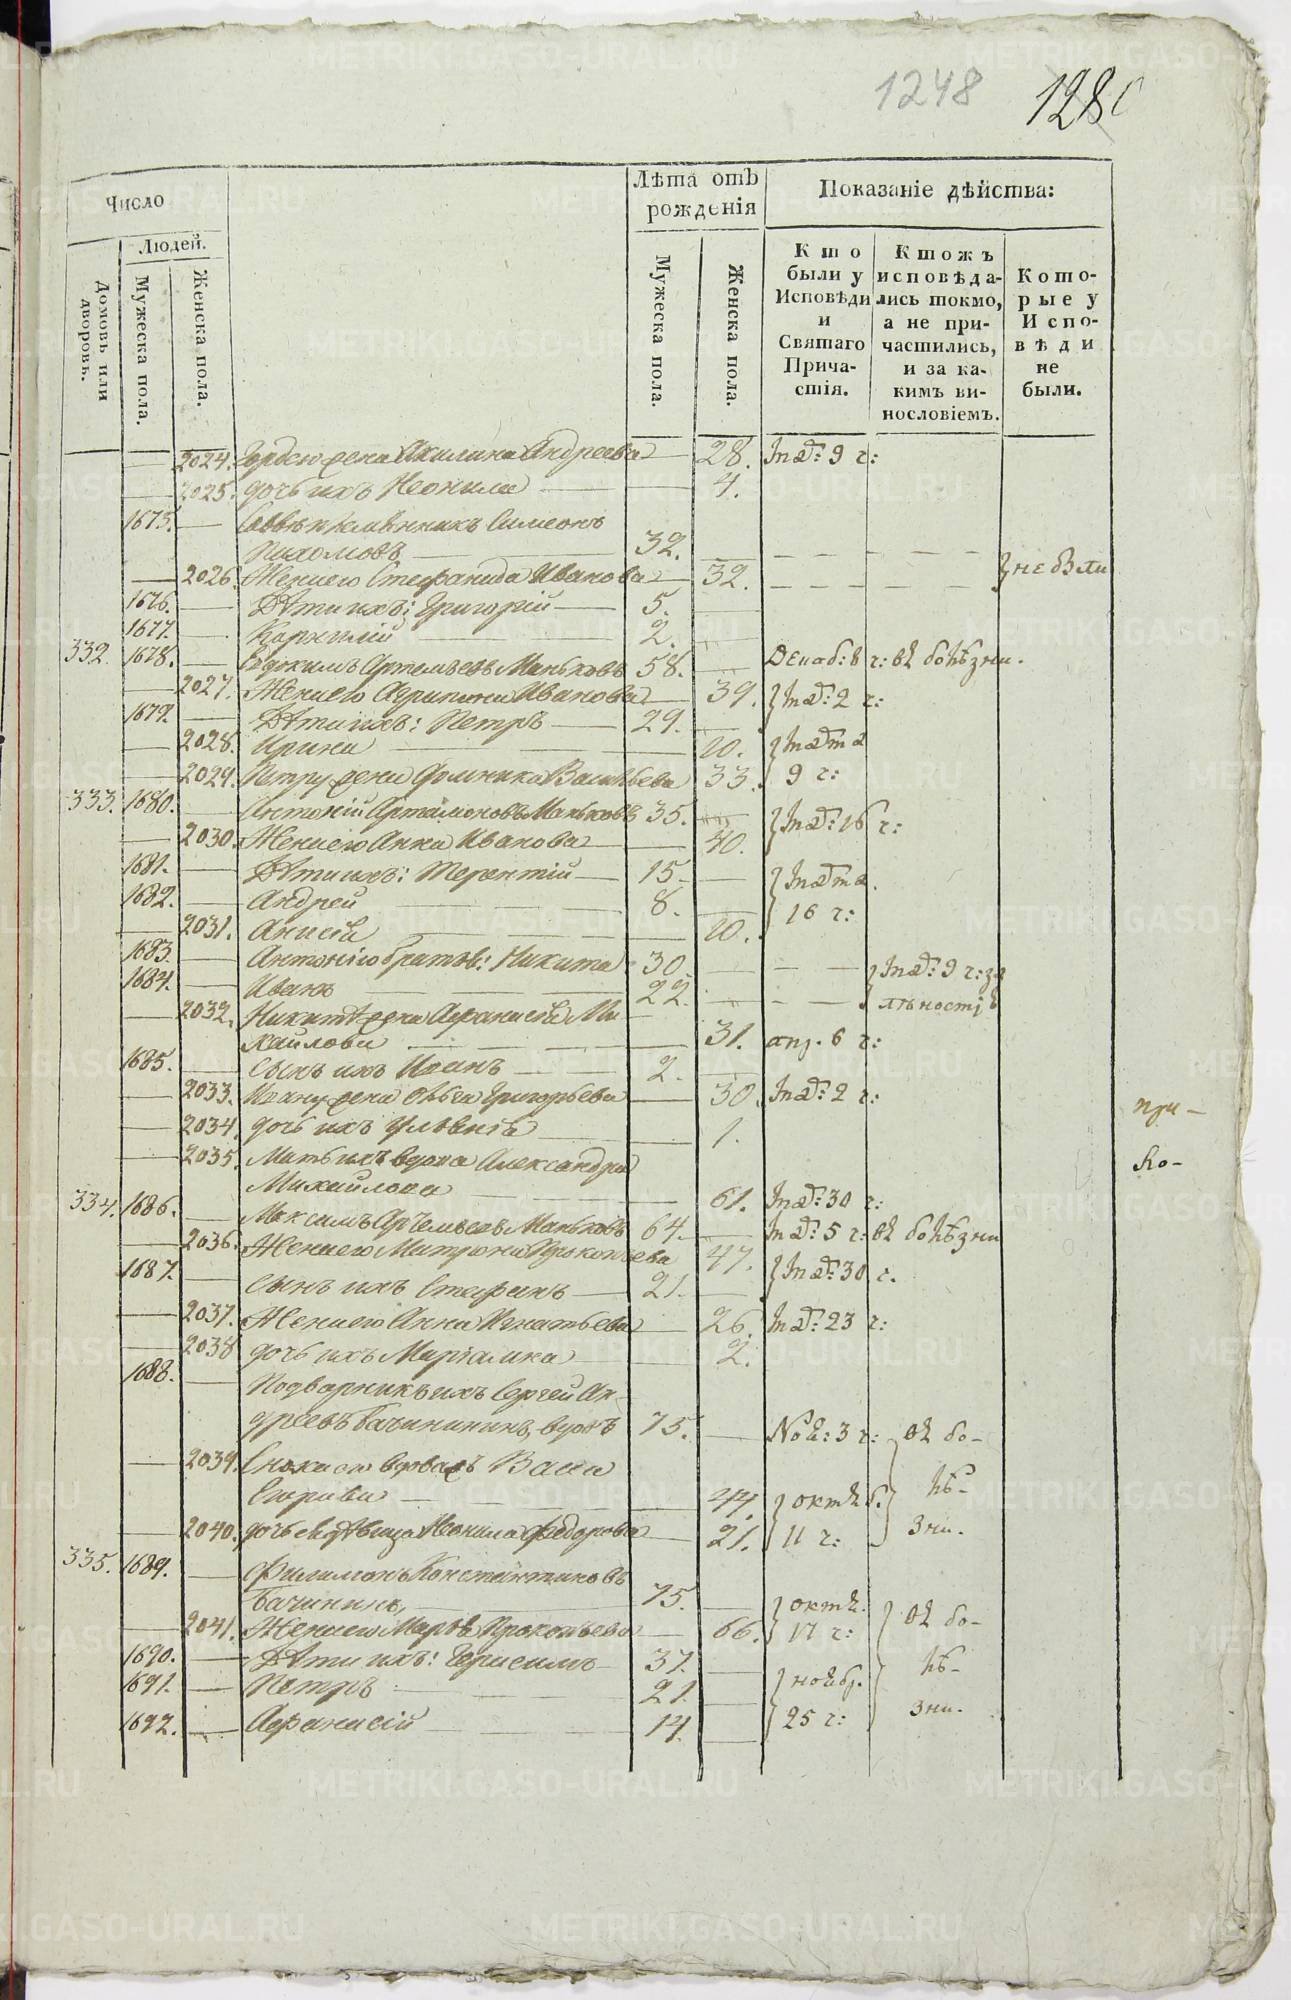 1248 1280
Число
Лѣта отъ рожденія
Показаніе дѣйства:
Людей.
Домовъ или дворовъ.
Мужеска пола.
Женска пола.
Мужеска пола.
Женска пола.
Кто были у Исповѣди и Святаго Причастія.
Ктожъ исповѣдались токмо, а не причастились, и за какимъ винословіемъ.
Которые у Исповѣди не были.
2024. жена Акилина Андреева 28. 9 ч:
2025. дочь ихъ Неонила 4.
1675. племянникъ Симеонъ
Пахомовъ 32.
2026. Жена его Стефанида Иванова 32. не были
1676. Дѣти ихъ: Григорій 5.
1677. Корнилій 2.
332. 1678. Евдокимъ Артемьевъ Маньковъ 58. Декаб: 8 ч: въ болѣзни.
2027. Жена его Агрипина Иванова 39. 2 ч:
1679. Дѣти ихъ: Петръ 29.
2028. Ирина 10.
2029. Петру жена Домника Васильева 33. 9 ч:
333. 1680. Антоній Артамоновъ Маньковъ 35. 16 ч:
2030. Жена его Анна Иванова 40.
1681. Дѣти ихъ: Терентій 15.
1682. Андрей 8. 16 ч:
2031. Анисія 10.
1683. Антонію братья: Никита 30. 9 ч: за
1684. Иванъ 22.
2032. Никитѣ жена Афанасія Ми
хайлова 31. апр. 6 ч:
1685. Сынъ ихъ Иванъ 2.
2033. Ивану жена Ольга Григорьева 30. 2 ч:
2034. дочь ихъ Ульянія 1.
2035. Мать ихъ вдова Александра
Михайлова 61. 30 ч:
334. 1686. Максимъ Артемьевъ Маньковъ 64. 5 ч: въ болѣзни
2036. Жена его Матрона Прокопьева 47. 30 ч.
1687. Сынъ ихъ Стефанъ 21.
2037. Жена его Анна Игнатьева 26. 23 ч:
2038 дочь ихъ Маріамна 2.
1688. Подворникъ ихъ Сергей Ан
дреевъ Бачининъ, вдовъ 75. Ноя: 3 ч: въ бо-
2039. Сноха его вдова Васса
44. октяб.
лѣ-
2040. дочь ея дѣвица Неонила Федорова 21. 11 ч: зни.
335. 1689. Филимонъ Константиновъ
Бачининъ, 75. октя.
2041. Жена его Марѳа Прокопьева 66. 17 ч: въ бо-
1690. Дѣти ихъ: Герасимъ 37. лѣ-
1691. Петръ 21. ноябр.
1692. Афанасій 14. 25 ч: зни.
при-
ко-